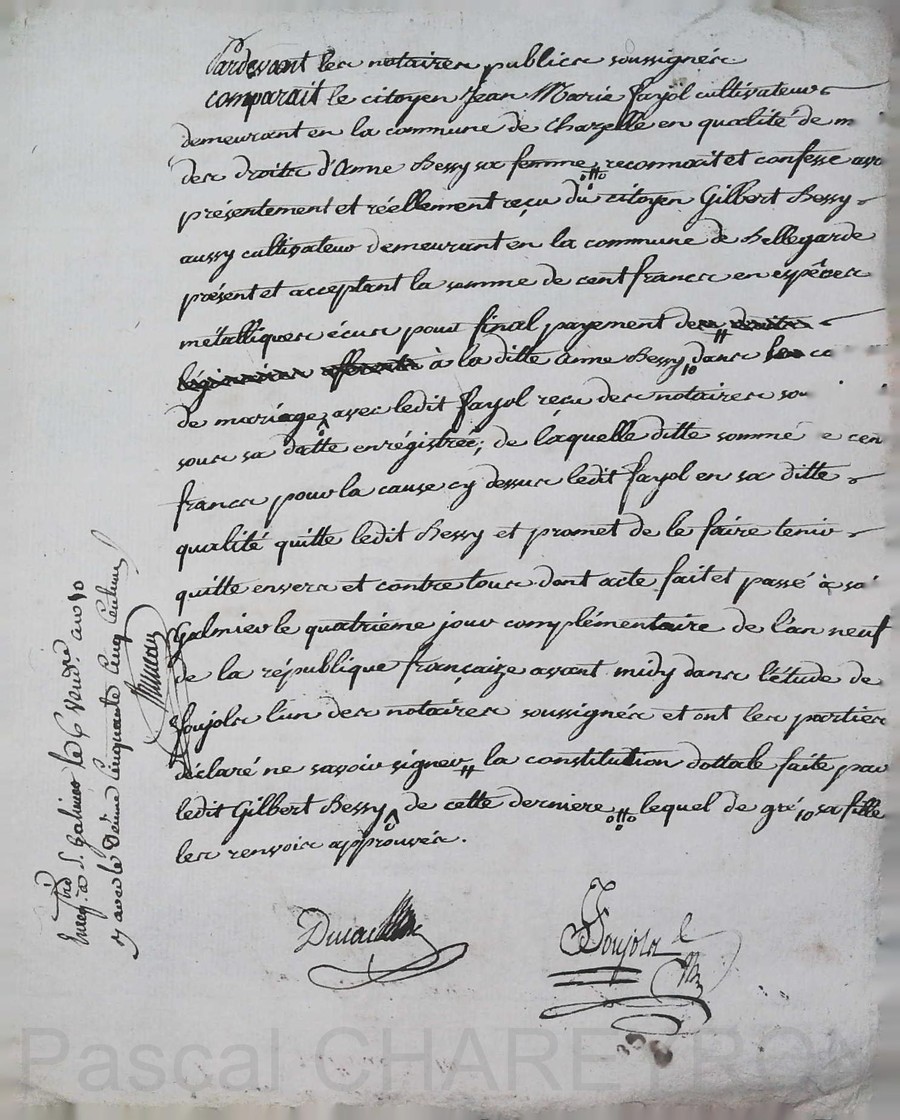 Pardevant les notaires publics soussignés
comparait le citoyen Jean Marie Fayol cultivateur
demeurant en la commune de Chazelle en qualité de m
des droits d'Anne Bessy sa femme, reconnoit et confesse avo
présentement et réellement reçu du citoyen Gilbert Bessy
aussy cultivateur demeurant en la commune de Bellegarde
présent et acceptant la somme de cent francs en espêces
métalliques écus pour final payement des droits
légitimaires afferents à la ditte Anne Bessy dans son co
de mariage avec ledit Fayol reçu des notaires sou
sous sa datte enrégistré; de laquelle ditte somme e cen
francs pour la cause cy dessus ledit Fayol en sa ditte
qualité quitte ledit Bessy et promet de le faire tenir
quitte envers et contre tous dont acte fait et passé à sai
Galmier le quatrième jour complémentaire de l'an neuf
de la république françaize avant midy dans l'étude de
Soujols l'un des notaires soussignés et ont les parties
déclaré ne savoir signer # la constitution dottale faite par
ledit Gilbert Bessy ^ de cette derniere lequel de gré, sa fille
les renvois approuvés.
Soujols
Enreg. à S. Galmier le 6 Vendre. an 10
avec le Décime cinquante cinq Centimes
Pascal CHAREYRON